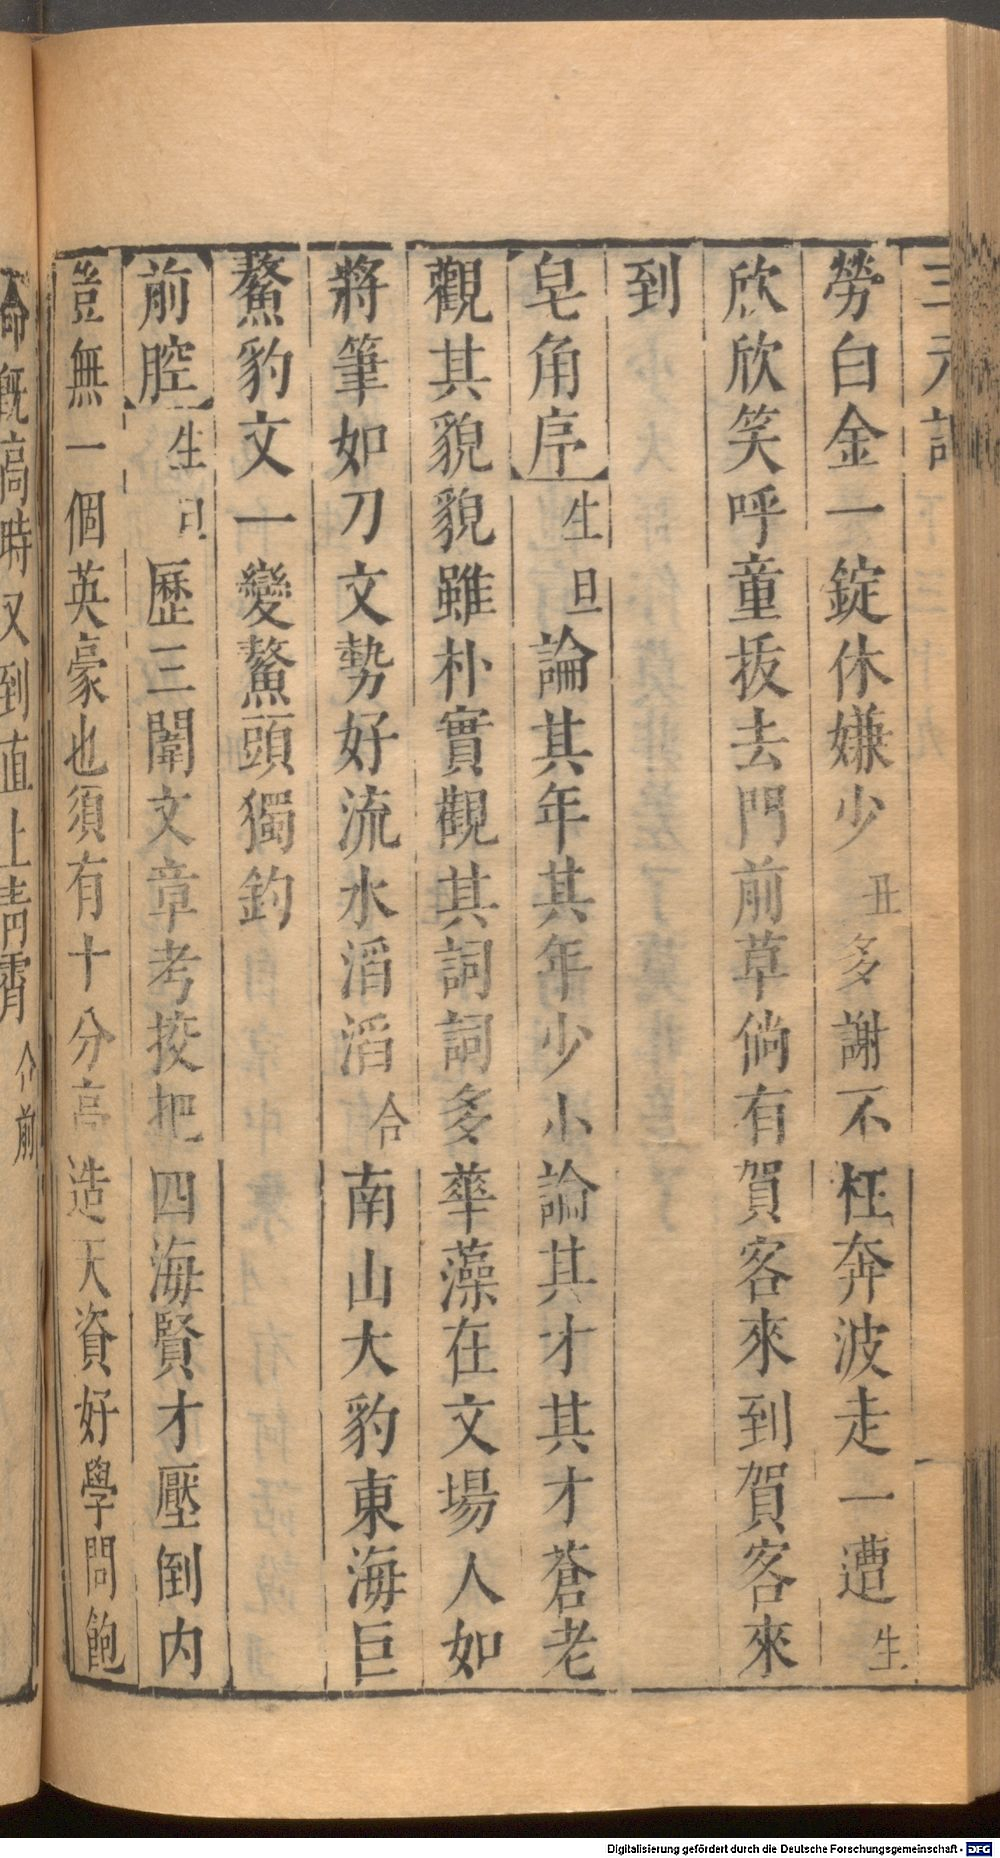 三元記
勞白金一錠休嫌少 丑 多謝不枉奔波走一遭 生
欣欣笑呼童拔去門前草倘有賀客來到賀客來
到
皂角序 生 旦 論其年其年少小論其才其才蒼老
觀其貌貌雖朴實觀其詞詞多華藻在文場人如
將筆如刀文勢好流水滔滔 合 南山大豹東海巨
鰲豹文一變鰲頭獨釣
前腔 生 歷三闈文章考挍把四海賢才壓倒內
豈無一個英豪也須有十分高造天資好學問飽
命旣高時又到直上靑霄 合前
Digitalisierung gefördert durch die Deutsche Forschungsgemeinschaft - DFG